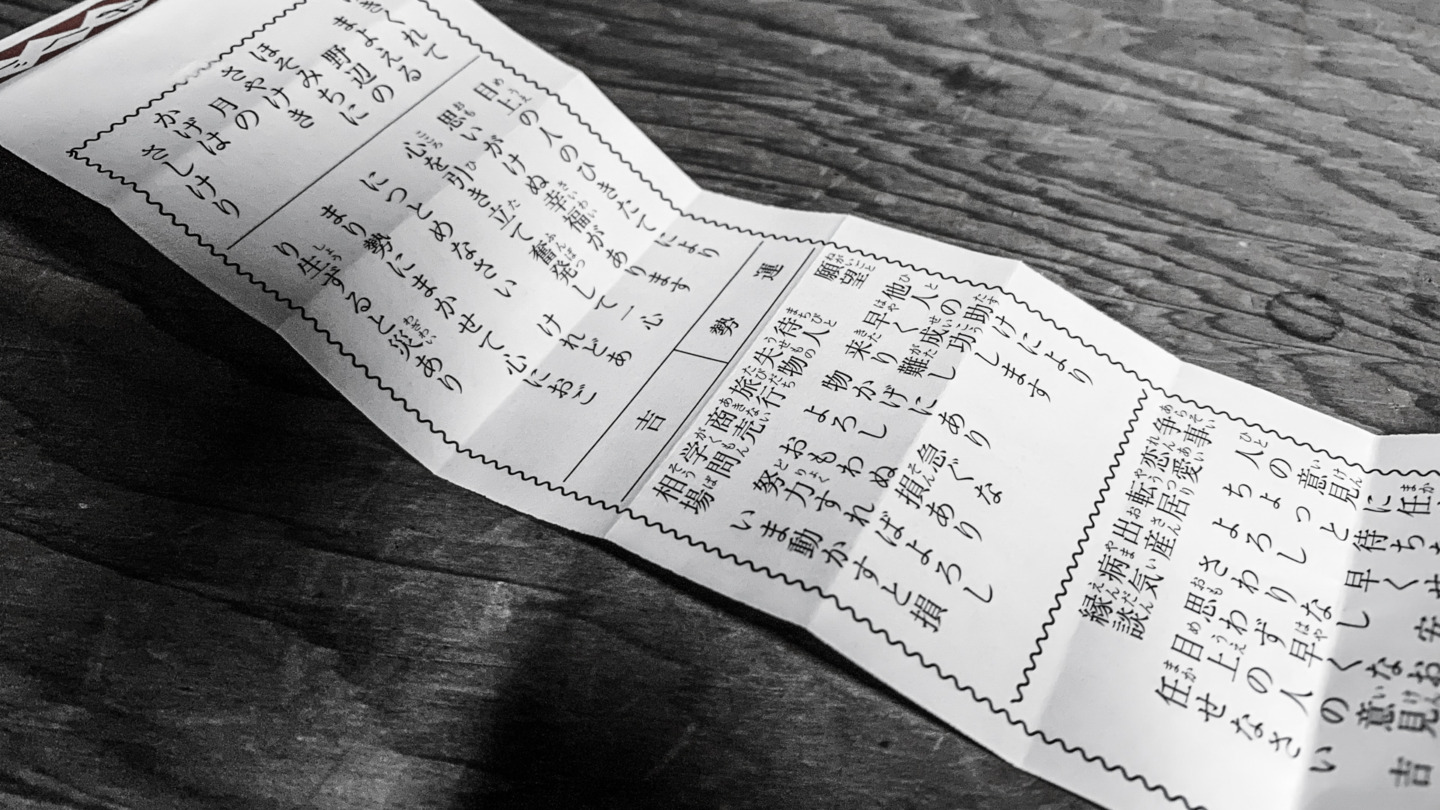 いきくれて
まよえる
野辺の
ほそみちに
さやけき
月の
かげは
さしけり
目上の人のひきたてにより
思いがけぬ幸福があります
心を引き立て奮発して一心
につとめなさい けれどあ
まり勢にまかせて心におご
り生ずると災あり
運勢 吉
願望 他人の助けにより
早く成功します
待人 来り難し
失物 物かげにあり
旅行 よろし 急ぐな
商売 おもわぬ損あり
学問 努力すればよろし
相場 いま動かすと損
争事 人の意見に任せ
恋愛 ちょっと待ち
転居 よろし 早く
出産 さわりなし 安
病気 思わず早くなお
縁談 目上の人の意見
任せなさい 吉